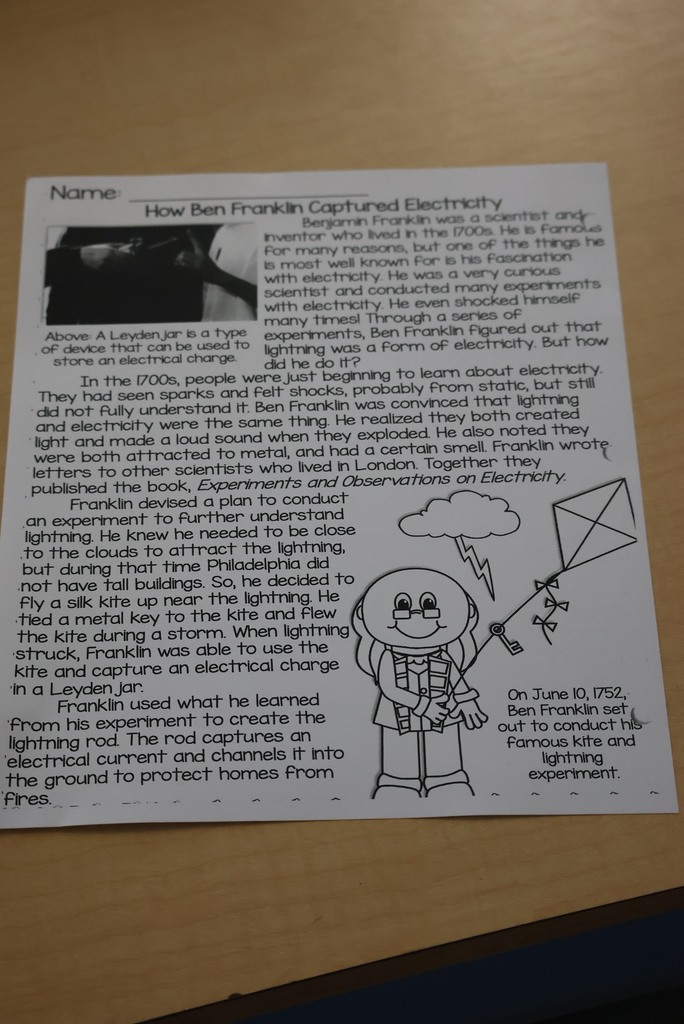 Name:
How Ben Franklin Captured Electricity
Benjamin Franklin was a scientist and
inventor who lived in the 1700s. He is famous
for many reasons, but one of the things he
is most well known for is his fascination
with electricity. He was a very curious
scientist and conducted many experiments
with electricity. He even shocked himself
many times! Through a series of
experiments, Ben Franklin figured out that
lightning was a form of electricity. But how
did he do it?
Above: A Leyden jar is a type
of device that can be used to
store an electrical charge.
In the 1700s, people were just beginning to learn about electricity.
They had seen sparks and felt shocks, probably from static, but still
did not fully understand it. Ben Franklin was convinced that lightning
and electricity were the same thing. He realized they both created
light and made a loud sound when they exploded. He also noted they
were both attracted to metal, and had a certain smell. Franklin wrote
letters to other scientists who lived in London. Together they
published the book, Experiments and Observations on Electricity.
Franklin devised a plan to conduct
an experiment to further understand
lightning. He knew he needed to be close
to the clouds to attract the lightning,
but during that time Philadelphia did
not have tall buildings. So, he decided to
fly a silk kite up near the lightning. He
tied a metal key to the kite and flew
the kite during a storm. When lightning
struck, Franklin was able to use the
kite and capture an electrical charge
in a Leyden jar.
Franklin used what he learned
from his experiment to create the
lightning rod. The rod captures an
electrical current and channels it into
the ground to protect homes from
fires.
On June 10, 1752,
Ben Franklin set
out to conduct his
famous kite and
lightning
experiment.